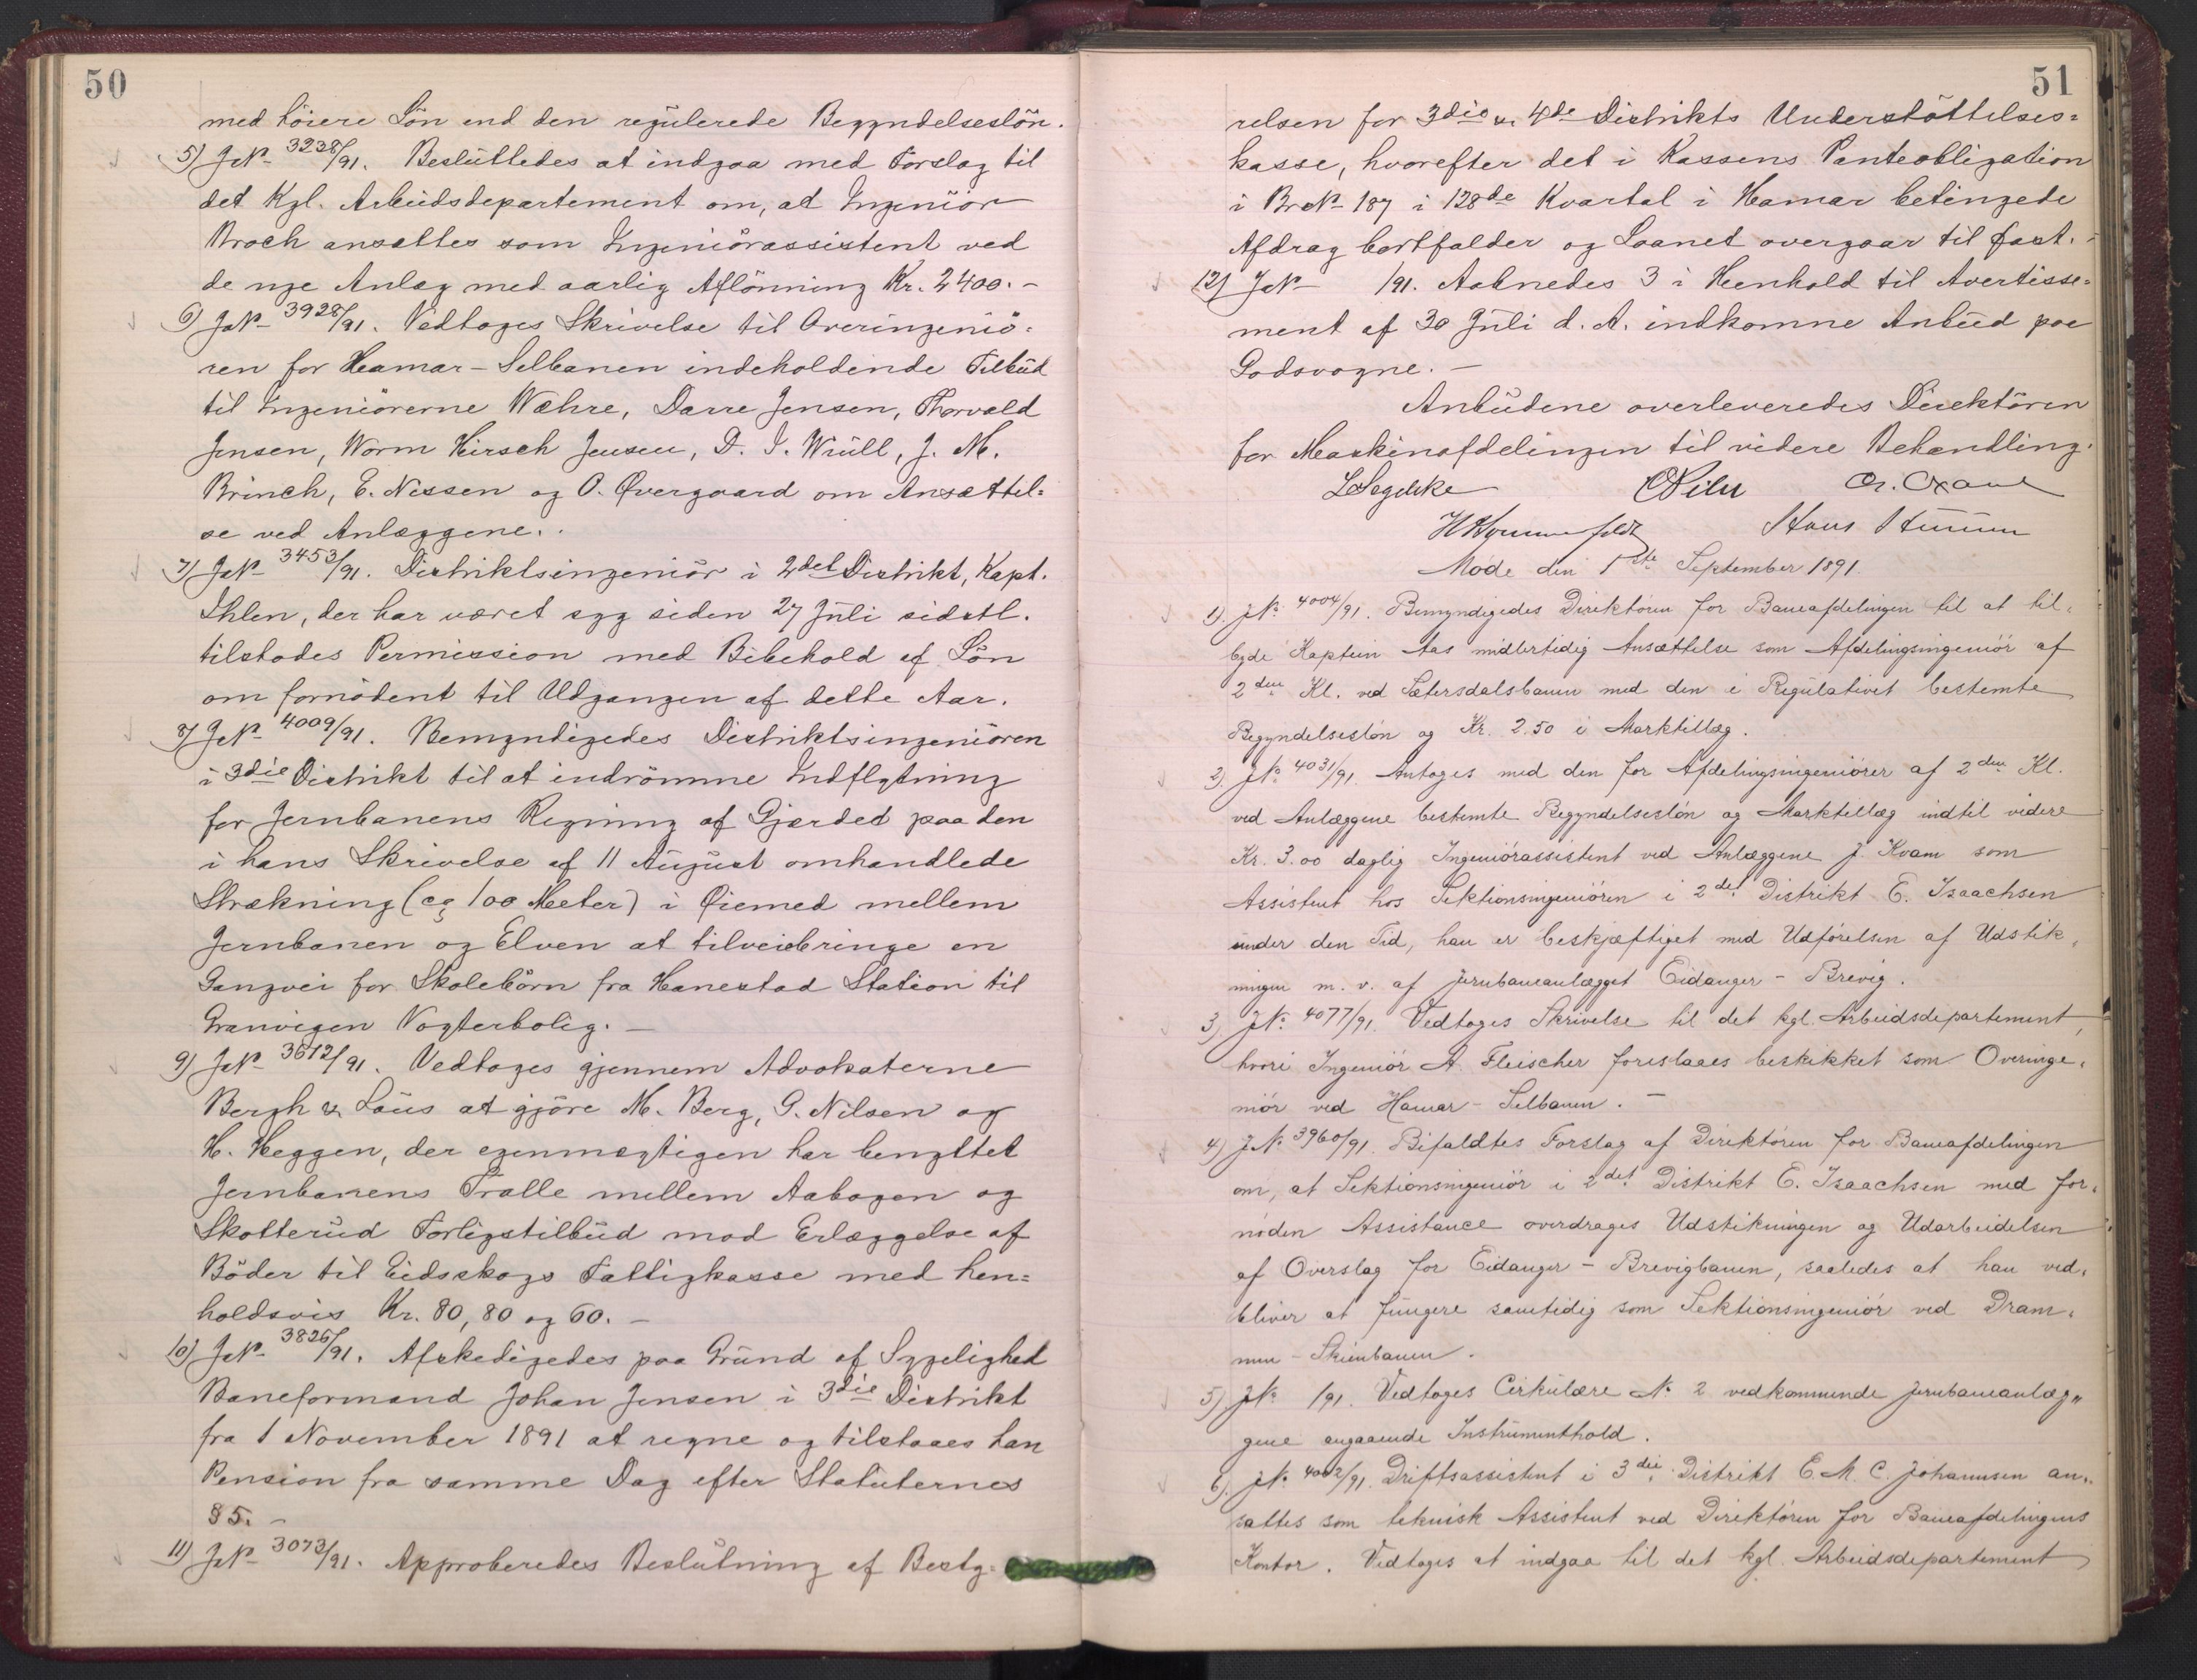 50
med höiere Lön end den regulerede Begyndelseslön.
5) J№ 3238/91. Besluttedes at indgaa med Forslag til
det Kgl. Arbeidsdepartement om, at Ingeniör
Broch ansættes som Ingeniörassistent ved
de nye Anlæg med aarlig Aflönning Kr. 2400.-
6) J№ 3928/91. Vedtoges Skrivelse til Overingeniö-
ren for Hamar-Selbanen indeholdende Tilbud
til Ingeniörerne Wæhre, Darre Jensen, Thorvald
Jensen, Worm Hirsch Jensen, D. I. Wiull, J. M.
Brinch, E. Nissen og O. Övergaard om Ansættel-
se ved Anlæggene.
7) J№ 3453/91. Distriktsingeniör i 2det Distrikt, Kapt.
Ihlen, der har været syg siden 27 Juli sidstl.
tilstodes Permission med Bibehold af Lön
om fornödent til Udgangen af dette Aar.
8) J№ 4009/91. Bemyndigedes Distriktsingeniören
i 3die Distrikt til at indrömme Indflytning
for Jernbanens Regning af Gjærdet paa den
i hans Skrivelse af 11 August omhandlede
Strækning (ca 100 Meter) i Öiemed mellem
Jernbanen og Elven at tilveiebringe en
Gangvei for Skolebörn fra Hanestad Station til
Granvigen Vogterbolig. -
9) J№ 3612/91. Vedtoges gjennem Advokaterne
Bergh & Lous at gjöre M. Berg, G. Nilsen og
H. Heggen, der egenmægtigen har benyttet
Jernbanens Tralle mellem Aabogen og
Skotterud Forligstilbud mod Erlæggelse af
Böder til Eidsskogs Fattigkasse med hen-
holdsvis Kr. 80, 80 og 60. -
10) J№ 3826/91. Afskedigedes paa Grund af Sygelighed
Baneformand Johan Jensen i 3die Distrikt
fra 1 November 1891 at regne og tilstaaes han
Pension fra samme Dag efter Statuternes
§ 5. -
11) J№ 3073/91. Approberedes Beslutning af Besty-
51
relsen for 3die & 4de Distrikts Understöttelses-
kasse, hvorefter det i Kassens Panteobligation
i Br№ 187 i 128de Kvartal i Hamar betingede
Afdrag bortfalder og Laanet overgaar til fast. -
12) J№ /91. Aabnedes 3 i Henhold til Avertisse-
ment af 30 Juli d. A. indkomne Anbud paa
Godsvogne. -
Anbudene overleveredes Direktören
for Maskinafdelingen til videre Behandling.
LSegelcke CPihl
Mode den 1ste September 1891.
1). J№ 4004/91. Bemyndigedes Direktören for Baneafdelingen til at til-
byde Kaptein Aas midlertidig Ansættelse som Afdelingsingeniör af
2den Kl. ved Sætersdalsbanen med den i Regulativet bestemte
Begyndelseslön og Kr. 2.50 i Marktillæg.
2). J№ 4031/91. Antoges med den for Afdelingsingeniörer af 2den Kl.
ved Anlæggene bestemte Begyndelseslön og Marktillæg indtil videre
Kr. 3.00 daglig Ingeniörassistent ved Anlæggene J. Kvam som
Assistent hos Sektionsingeniören i 2det Distrikt E. Isaachsen
under den Tid, han er beskjæftiget med Udförelsen af Udstik-
ningen m. v. af Jernbaneanlægget Eidanger - Brevig.
3) J№ 4077/91. Vedtoges Skrivelse til det kgl. Arbeidsdepartement,
hvori Ingeniör A. Fleischer foreslaaes beskikket som Overinge-
niör ved Hamar - Selbanen. -
4) J№ 3960/91. Bifaldtes Forslag af Direktören for Baneafdelingen
om, at Sektionsingeniör i 2det Distrikt E. Isaachsen med for-
nöden Assistance overdrages Udstikningen og Udarbeidelsen
af Overslag for Eidanger - Brevigbanen, saaledes at han ved-
bliver at fungere samtidig som Sektionsingeniör ved Dram-
men - Skienbanen.
5). J№ /91. Vedtoges Cirkulære № 2 vedkommende Jernbaneanlæg„
gene angaaende Instrumenthold.
6). J№ 4002/91. Driftsassistent i 3die Distrikt E. M. C. Johannsen an„
sættes som teknisk Assistent ved Direktören for Baneafdelingens
Kontor. Vedtoges at indgaa til det kgl. Arbeidsdepartement